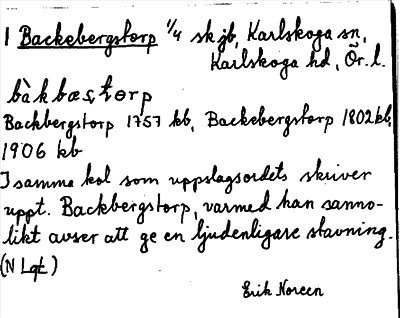 1 Backebergstorp 1/4 sk jb, Karlskoga sn,
Karlskoga hd, Ör. l.
bàkbæʂtorp
Backbergstorp 1757 kb, Backebergstorp 1802 kb,
1906 kb
I samma kol som uppslagsordets skriver
uppt. Backbergstorp, varmed han sanno-
likt avser att ge en ljudenligare stavning.
(N Lgt)
Erik Noreen